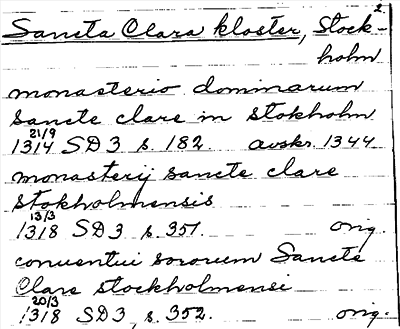 2.
Sancta Clara kloster, Stock-
holm
monasterio dominarum
sancte clare in stokholm
21/9
1314 SD 3 s. 182. avskr. 1344
monasterij sancte clare
stokholmensis
13/3
1318 SD 3 s. 351. orig.
conuentui sororum Sancte
Clare stockholmensi
20/3
1318 SD 3, s. 352. orig.